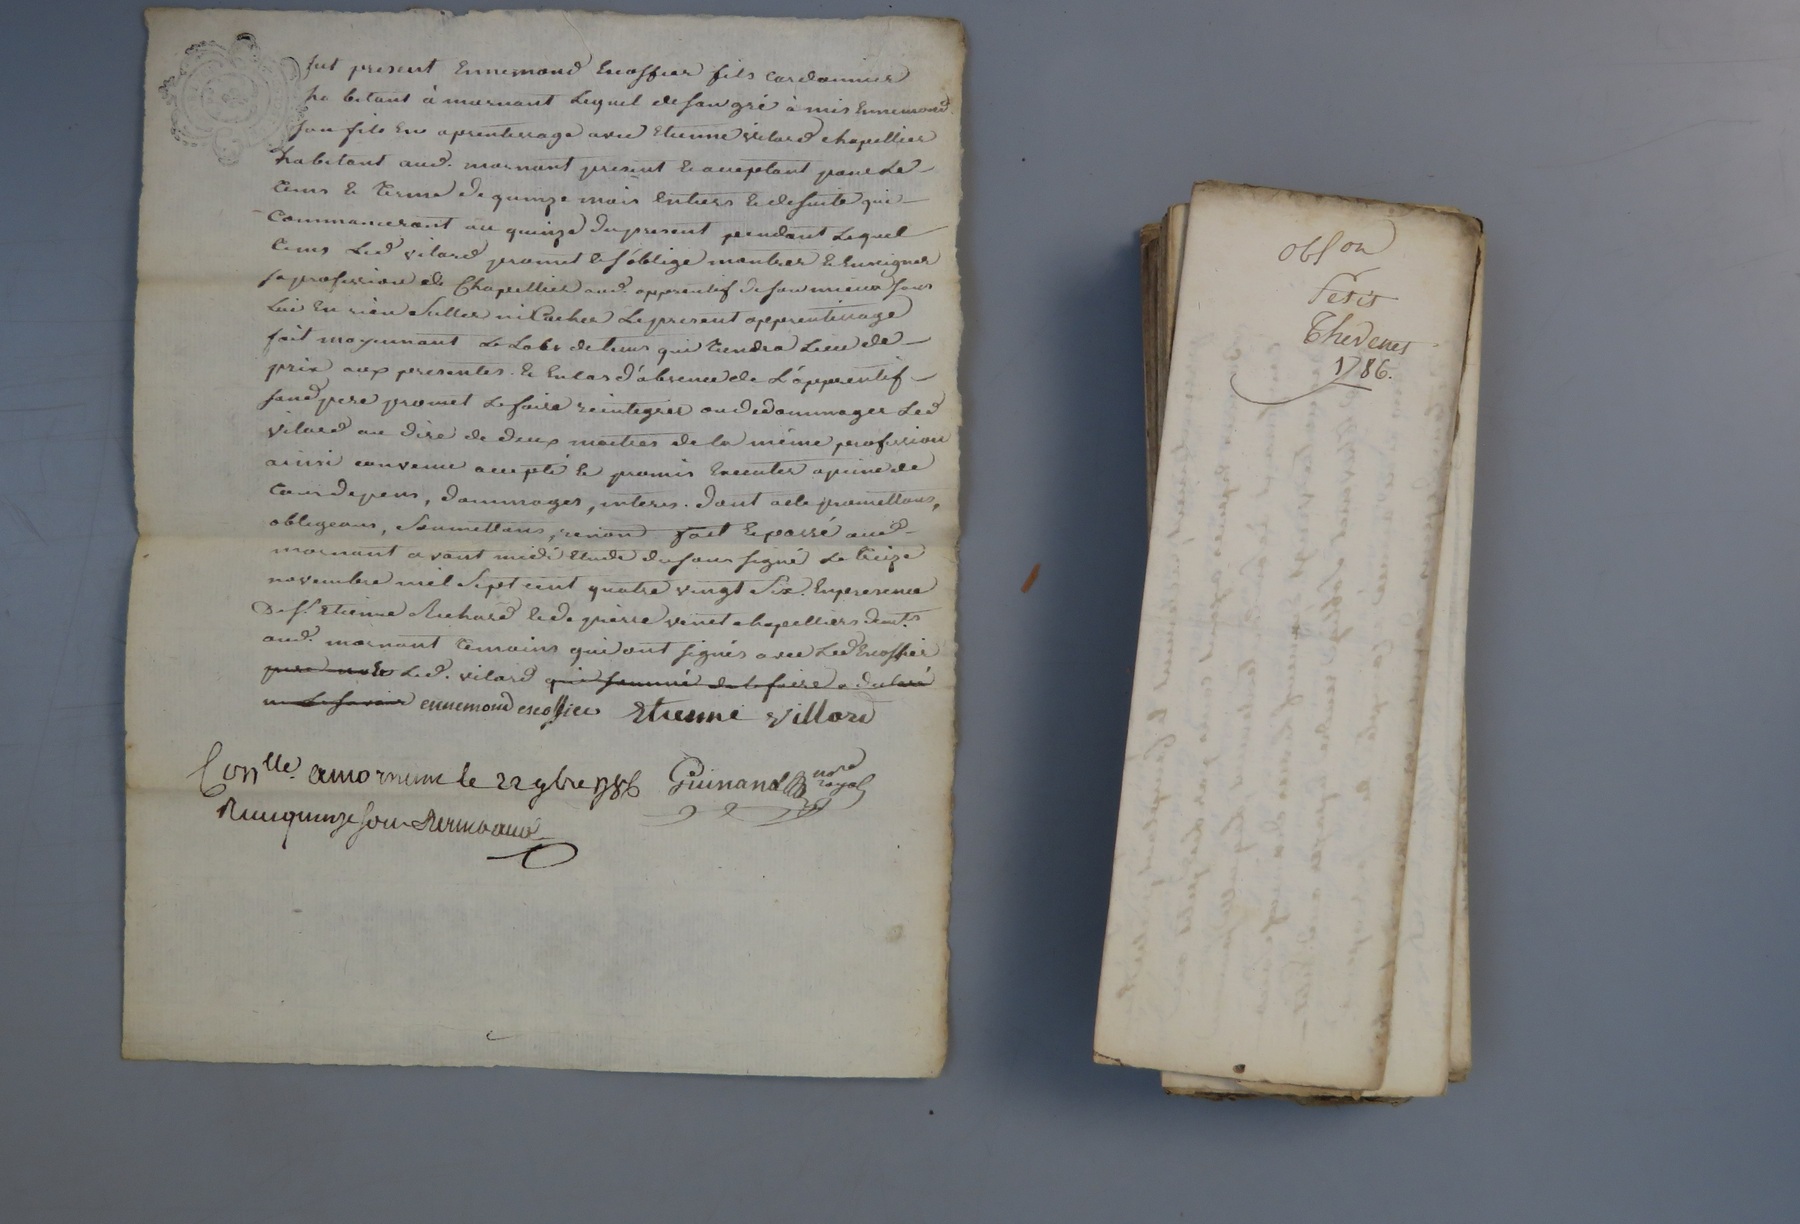 fut present Ennemond Escoffier fils cordonnier
habitant à mornant Lequel de son gré à mis Ennemond
son fils En aprentissage avec Etienne vilard chapellier
habitant aud. mornant present Et acceptant pour Le
tems Et terme de quinze mois Entiers Et de suite qui
Commanceront au quinze du present pendant Lequel
tems Led vilard promet Et s'oblige montrer Et Enseigner
sa profession de Chapellier aud. apprentif de son mieux sans
Lui En rien Celler ni Cacher Le present apprentissage
fait moyennant Le Labs de tems qui tiendra Lieu de
prix aux presentes. Et En cas d'absence de L'apprentif
sond pere promet Le faire reintegrer ou dedommager Led
vilard au dire de deux maitres de la même profession
ainsi convenu accepté Et promis Executer a peine de
tous depens, dommages, interes. Dont acte promettans,
obligeans, Soumettans, renon fait Et passé aud
mornant avant midi Etude du sous signé Le treize
novembre mil Sept cent quatre vingt Six. En presence
De Sr. Etienne Richard Et de pierre venet chapelliers demts
aud. mornant temoins qui ont signés avec Led Escoffier
pere Led. vilard qui sommé de le faire a declaré
ne Le savoir ennemond escoffier Etienne villard
Conlle. a mornant le 22 9bre 1786 Guinand nore royal
Recu quinze sous
obl on
Petit
Thevenet
1786.